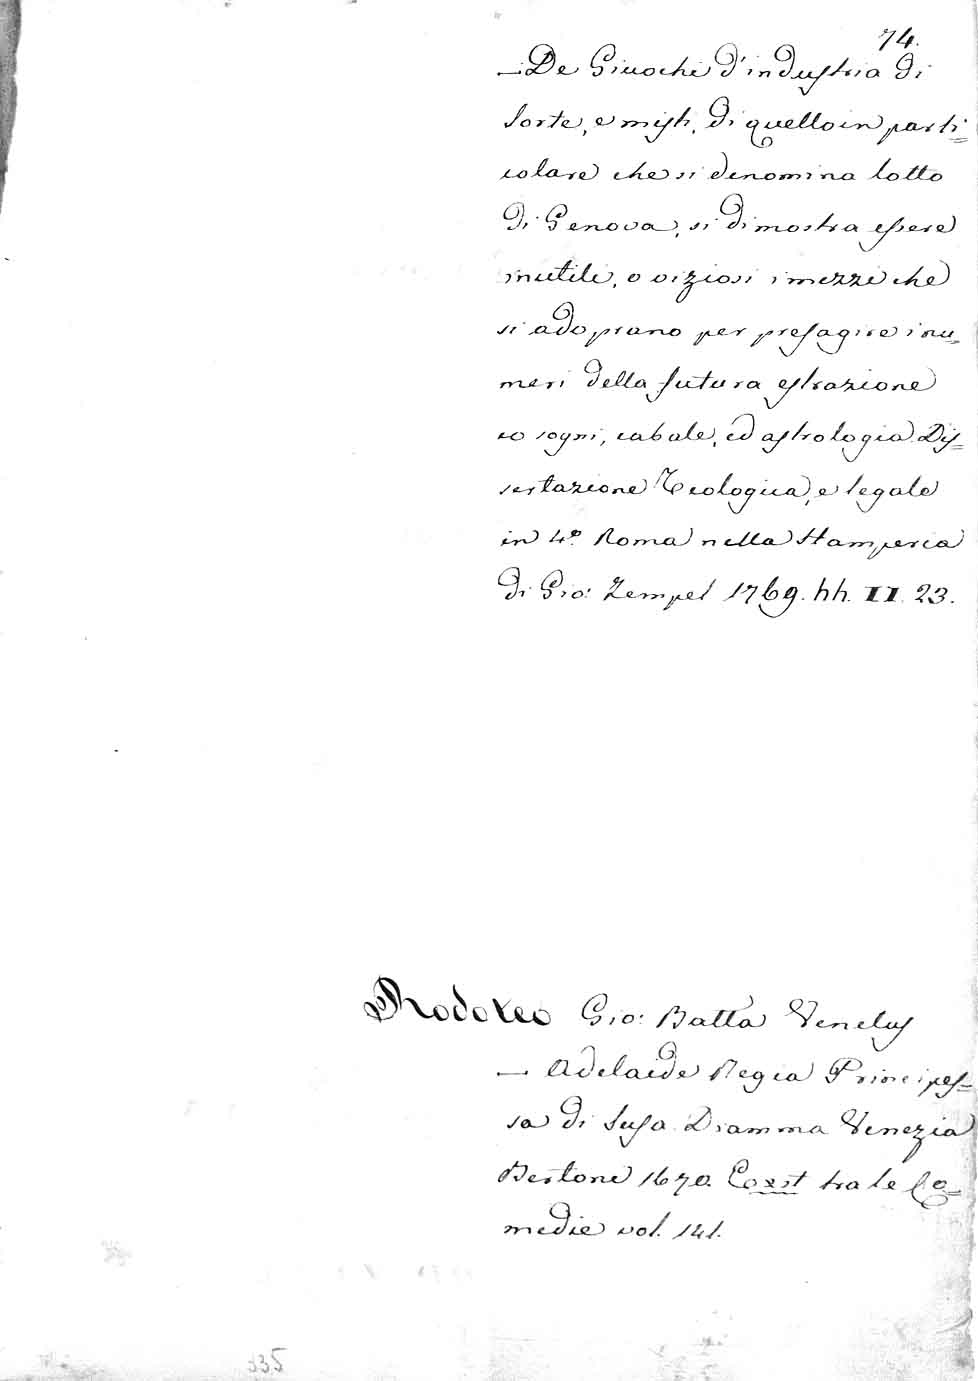 74.
— De Giuochi d'industria di
sorte, e misti, di quello in parti=
colare che si denomina lotto
di Genova, si dimostra essere
inutili, o viziosi i mezzi che
si adoprano per presagire i nu=
meri della futura estrazione
co sogni, cabale, ed astrologia. Dis=
sertazione Teologica, e legale
in 4.º Roma nella Stamperia
di Gio: Zempel 1769. hh. II. 23.
Rodoteo Gio: Batta Venetus
— Adelaide Regia Principes=
sa di Susa. Dramma Venezia
Bertone 1670. Coest tra le Co=
medie vol. 141.
335